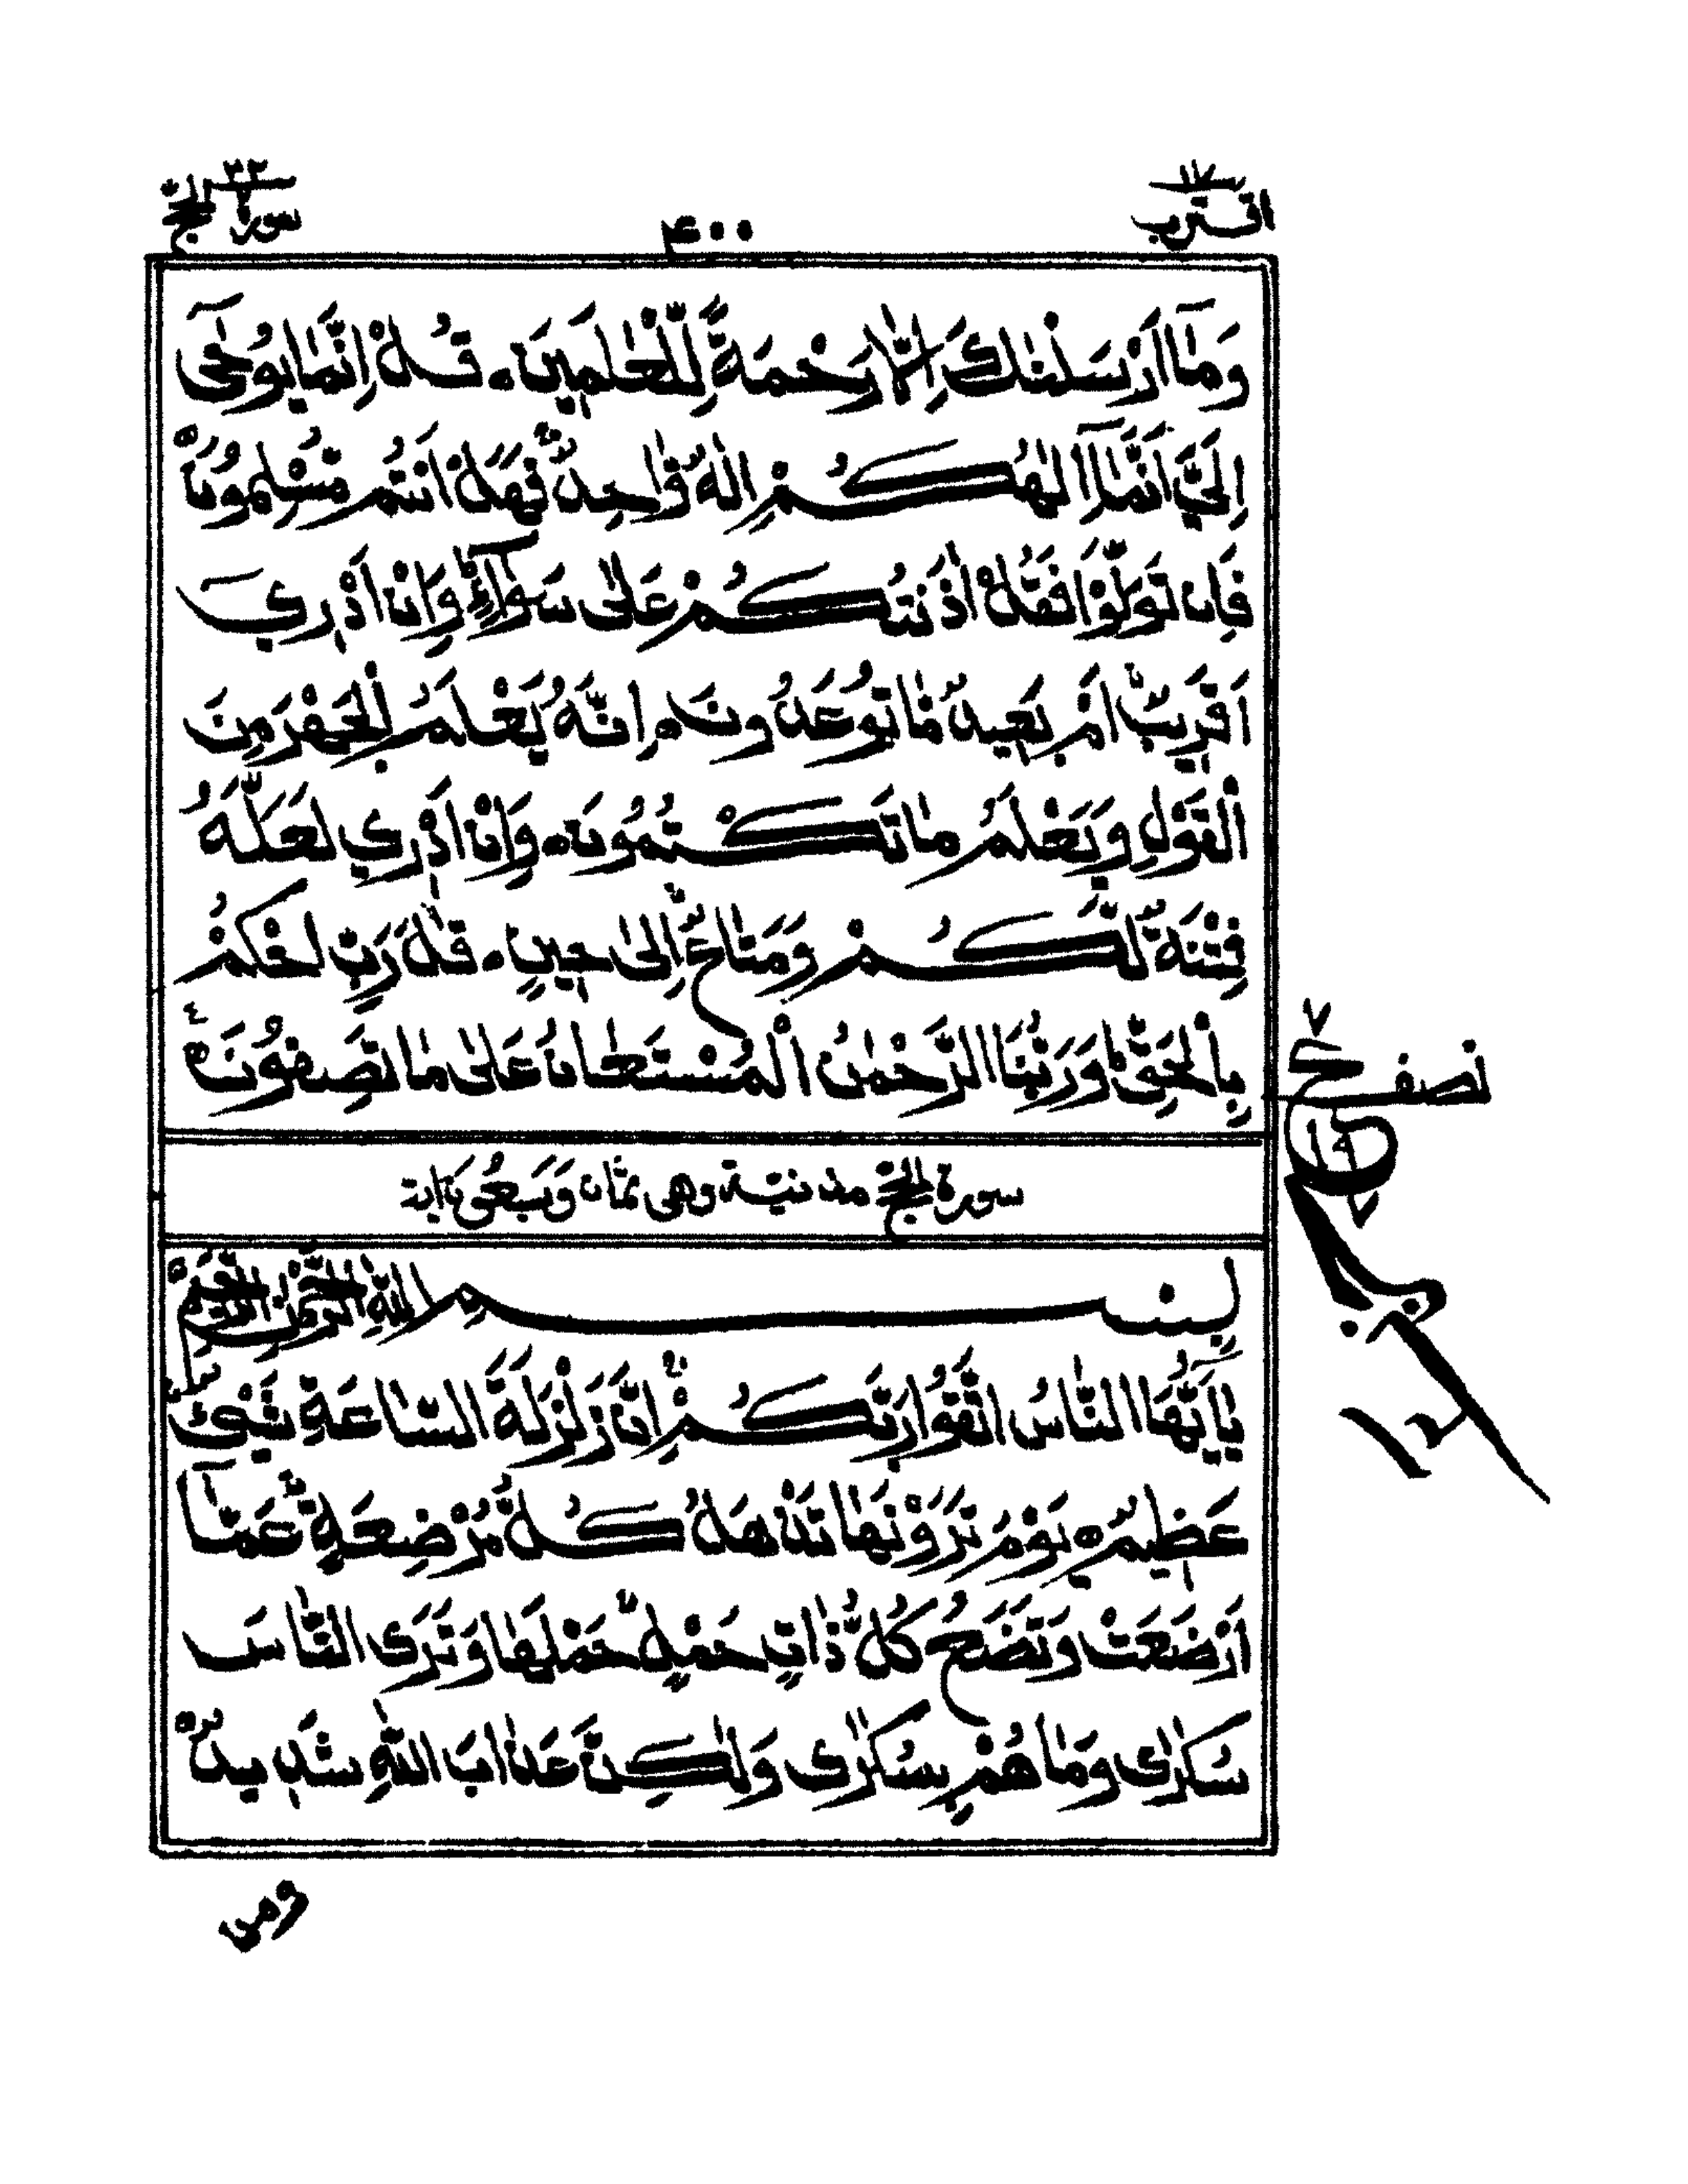 اقترب ١٧
٤٠٠
سورة الحج ٢٢
وَمَآ اَرْسَلْنٰكَ اِلَّا رَحْمَةً لِّلْعٰلَمِيْنَ ه قُلْ اِنَّمَا يُوْحٰٓى
اِلَيَّ اَنَّمَآ اِلٰهُكُمْ اِلٰهٌ وَّاحِدٌ فَهَلْ اَنْتُمْ مُّسْلِمُوْنَ ه
فَاِنْ تَوَلَّوْا فَقُلْ اٰذَنْتُكُمْ عَلٰى سَوَآءٍ وَاِنْ اَدْرِيْٓ
اَقَرِيْبٌ اَمْ بَعِيْدٌ مَّا تُوْعَدُوْنَ ه اِنَّهٗ يَعْلَمُ الْجَهْرَ مِنَ
الْقَوْلِ وَيَعْلَمُ مَا تَكْتُمُوْنَ ه وَاِنْ اَدْرِيْ لَعَلَّهٗ
فِتْنَةٌ لَّكُمْ وَمَتَاعٌ اِلٰى حِيْنٍ ه قٰلَ رَبِّ احْكُمْ
بِالْحَقِّ وَرَبُّنَا الرَّحْمٰنُ الْمُسْتَعَانُ عَلٰى مَا تَصِفُوْنَ ه
نصف
سورة الحج مدنية وهى ثمان وسبعون اية
بِسْمِ اللّٰهِ الرَّحْمٰنِ الرَّحِيْمِ
يٰٓاَيُّهَا النَّاسُ اتَّقُوْا رَبَّكُمْ اِنَّ زَلْزَلَةَ السَّاعَةِ شَيْءٌ
عَظِيْمٌ ه يَوْمَ تَرَوْنَهَا تَذْهَلُ كُلُّ مُرْضِعَةٍ عَمَّآ
اَرْضَعَتْ وَتَضَعُ كُلُّ ذَاتِ حَمْلٍ حَمْلَهَا وَتَرَى النَّاسَ
سُكٰرٰى وَمَا هُمْ بِسُكٰرٰى وَلٰكِنَّ عَذَابَ اللّٰهِ شَدِيْدٌ ه
ومن